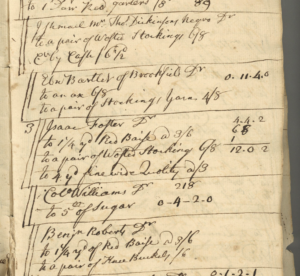 to 1 pair Red garters /8 89
Ishmael Mr Thos Dickinsons Negro Dr
to a pair of Wosted Stockings 6/8
Cr by Cash /
Ebnr Bartlet of Brookfield Dr 0-11-4.0
to an ax 6/8
to a pair of Stockings Yarn 4/8
3 Isaac Foster Dr 4-4-2
to 1/4 yd Red Baise a 3/6 68
to a pair of Wosted Stockings 6/8 12.0 2
to 4 yd fine wide Quality a/3
Colo Williams Dr 218
to 5 lb of Sugar 0-4-2-0
Benjn Roberts Dr
to 1 1/4 yd of Red Baise a 3/6
to a pair of Knee Buckels /6